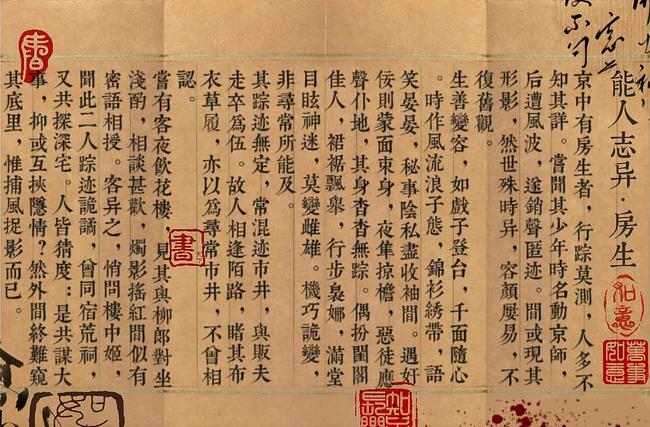 能人志异·房生
如意
萬事如意
京中有房生者，行踪莫測，人多不
知其詳。嘗聞其少年時名動京師，
后遭風波，遂銷聲匿迹。間或現其
形影，然世殊時异，容顏屢易，不
復舊觀。
生善變容，如戲子登台，千面隨心
。時作風流浪子態，錦衫綉帶，語
笑晏晏，秘事陰私盡收袖間。遇奸
佞則蒙面束身，夜隼掠檐，惡徒應
聲仆地，其身杳杳無踪。偶扮閨閣
佳人，裙裾飄舉，行步裊娜，滿堂
目眩神迷，莫變雌雄。機巧詭變，
非尋常所能及。
其踪迹無定，常混迹市井，與販夫
走卒爲伍。故人相逢陌路，睹其布
衣草履，亦以爲尋常市井，不曾相
認。
嘗有客夜飲花樓，見其與柳郎對坐
淺酌，相談甚歡，燭影搖紅間似有
密語相授。客异之，悄問樓中姬，
聞此二人踪迹詭譎，曾同宿荒祠，
又共探深宅。人皆猜度：是共謀大
事，抑或互挾隱情？然外間終難窺
其底里，惟捕風捉影而已。
書